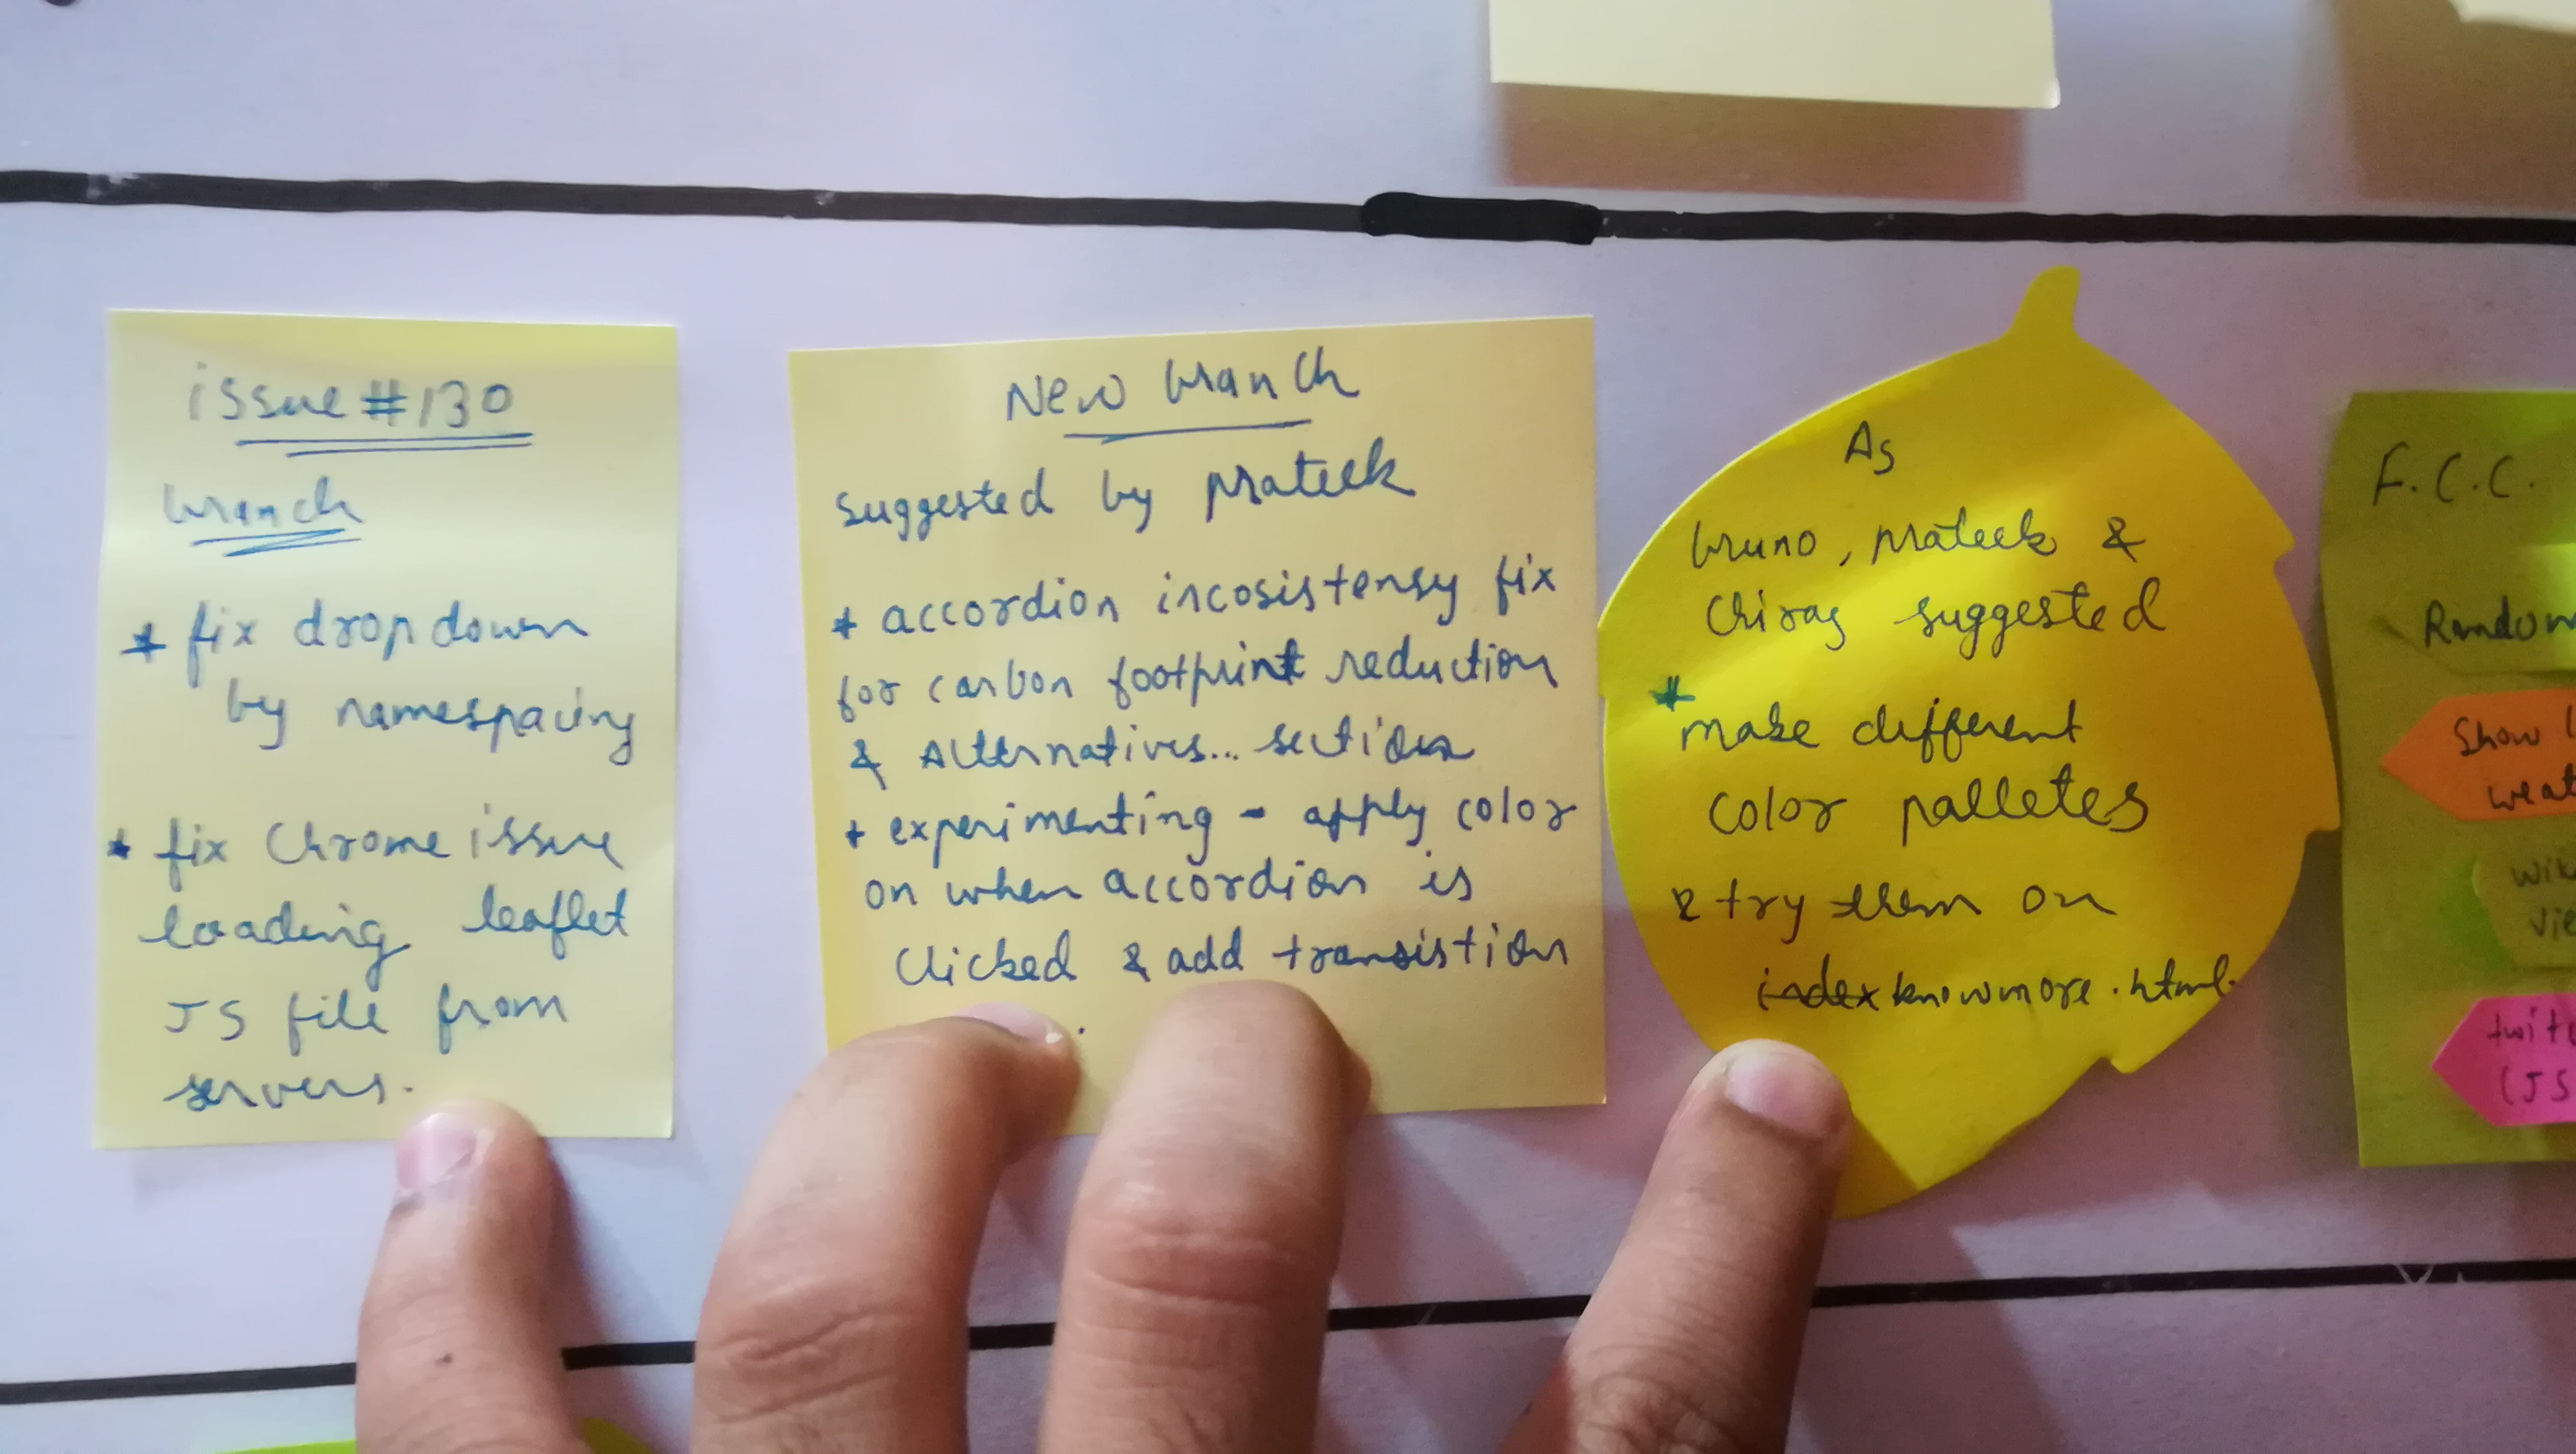 issue #130
branch
* fix dropdown
by namespacing
* fix Chrome issue
loading leaflet
JS file from
servers.
New branch
suggested by prateek
* accordion incosistensy fix
for carbon footprint reduction
& Alternatives... section
* experimenting - apply color
on when accordion is
clicked & add transistion
As
bruno, prateek &
Chirag suggested
* make different
color palletes
& try them on
index knowmore.html.
F.C.C.
Random
Show
(JS